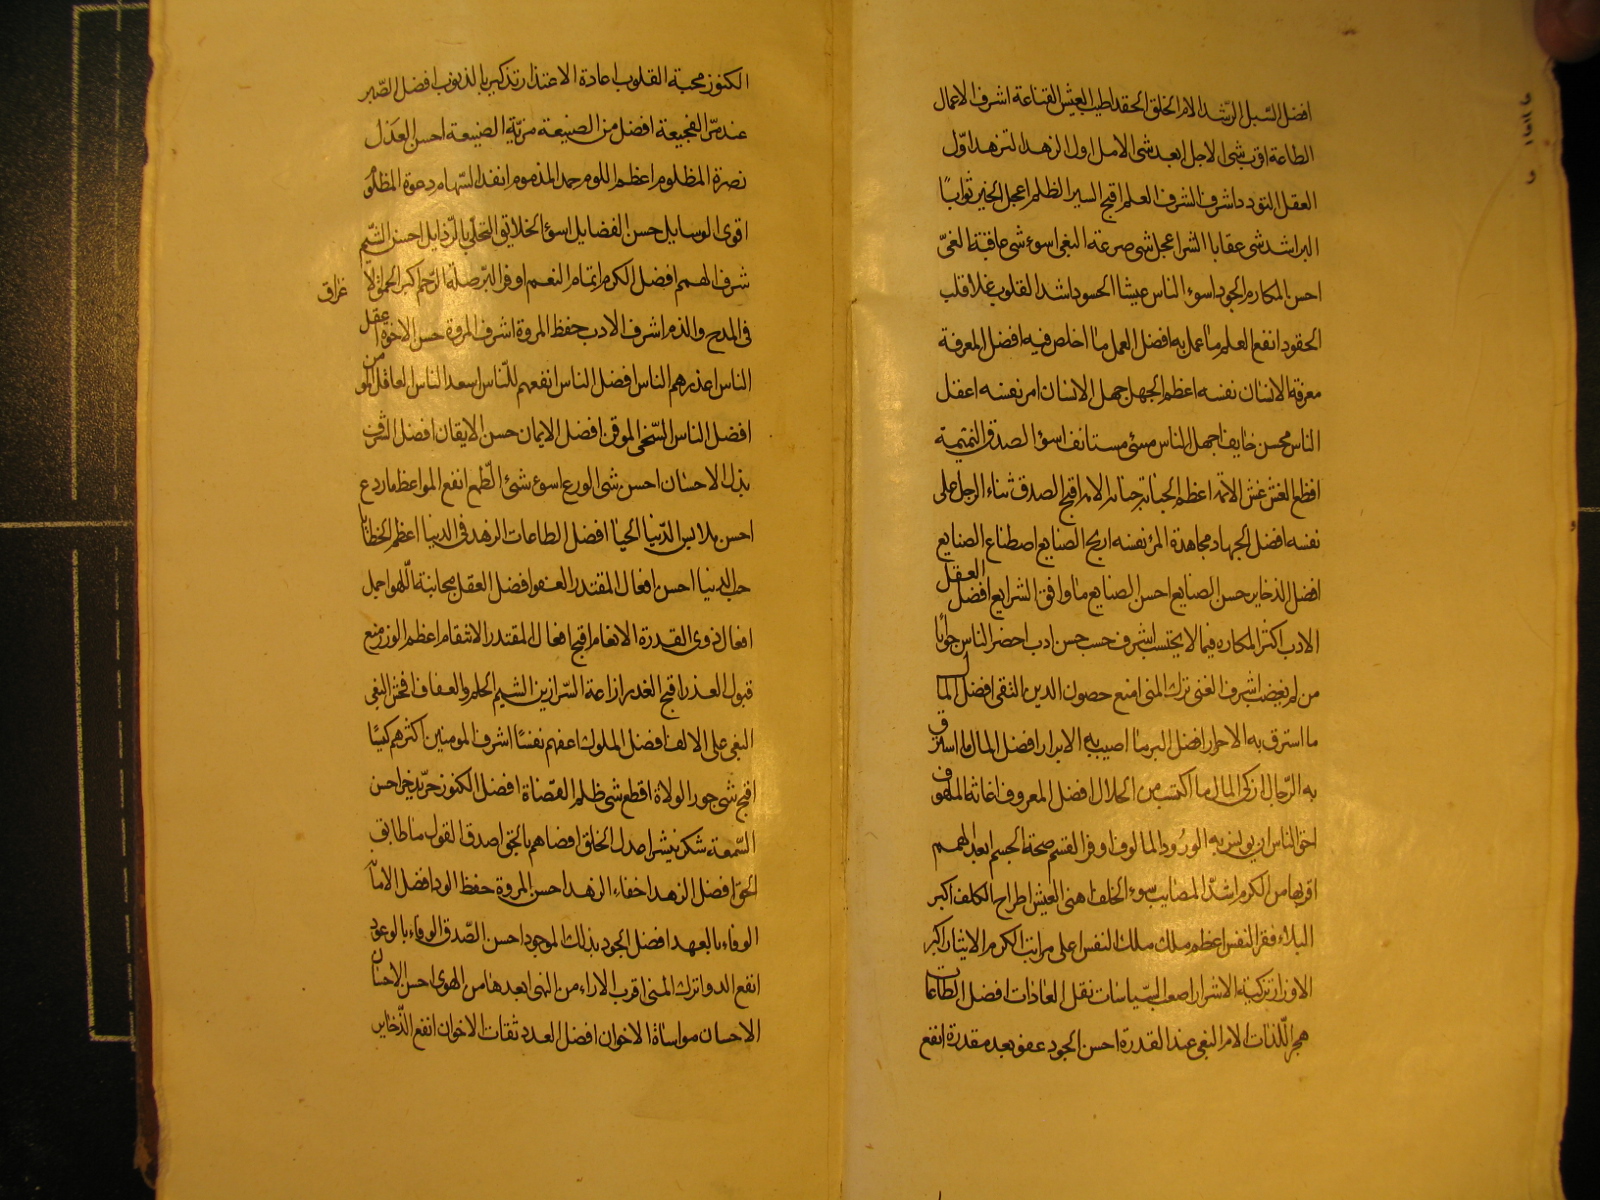 افضل السّبل الرّشد الام الخلق الحقد اطيب العيش القناعة اشرف الاعمال
الطاعة اقرب شئ الاجل ابعد شئ الامل اول الزهد التزهد اوّل
العقل التودد اشرف الشرف العلم اقبح السير الظلم اعجل الخير ثوابًا
البر اشد شئ عقابا الشر اعجل شئ صرعة البغى اسوء شئ عاقبة الغىّ
احسن المكارم الجود اسوء الناس عيشا الحسود اشد القلوب غلا قلب
الحقود انفع العلم ما عمل به افضل العمل ما اخلص فيه افضل المعرفة
معرفة الانسان نفسه اعظم الجهل جهل الانسان امر نفسه اعقل
الناس محسن خايف اجهل الناس مسئ مستانف اسوؤ الصدق النميمة
افظع الغش غش الائمة اعظم الخيانة خيانة الامة اقبح الصدق ثناء الرجل على
نفسه افضل الجهاد مجاهدة المرء نفسه اربح الصنايع اصطناع الصنايع
افضل الذخاير حسن الصنايع احسن الصنايع ما وافق الشرايع افضل العقل
الادب اكثر المكاره فيما لا يحتسب اشرف حسب حسن ادب احضر الناس جوابًا
من لم يغضب اشرف الغنى ترك المنى امنع حصون الدين التقى افضل المال
ما استرق به الاحرار افضل البر ما اصيب به الابرار افضل المال ما استرق
به الرّجال ازكى المال ما اكتسب من الحلال افضل المعروف اغاثة الملهوف
احق الناس ان يونس به الورود المالوف اوفر القسم صحة الجسم ابعد الهمم
اقربها من الكرم اشدّ المصايب سوء الخلف اهنى العيش اطراح الكلف اكبر
البلاء فقر النفس اعظم ملك ملك النفس اعلى مراتب الكرم الايثار اكبر
الاوزار تزكية الاشرار اصعب السّياسات نقل العادات افضل الطاعات
هجر اللّذات الام البغى عند القدرة احسن الجود عفو بعد مقدرة انفع
الكنوز محبة القلوب اعادة الاعتذار تذكير بالذنوب افضل الصّبر
عند مرّ الفجيعة افضل من الصنيعة مزيّة الصنيعة احسن العدل
نصرة المظلوم اعظم اللوم حمد المذموم انفذ السّهام دعوة المظلوم
اقوى الوسايل حسن الفضايل اسوؤ الخلايق التحلّى بالرّذايل احسن الشّيم
شرف الهمم افضل الكرم اتمام النعم اوفر البرّ صلة الرّحم اكبر الحمق الا
غراق
فى المدح والذم اشرف الادب حفظ المروة اشرف المروة حسن الاخوة اعقل
الناس اعذرهم الناس افضل الناس انفعهم للنّاس اسعد الناس العاقل المومن
افضل الناس السّخى الموقن افضل الايمان حسن الايقان افضل الشّرف
بذل الاحسان احسن شئ الورع اسوء شئ الطّمع انفع المواعظ ما ردع
احسن ملابس الدّنيا الحياء افضل الطاعات الزهد فى الدنيا اعظم الخطايا
حب الدنيا احسن افعال المقتدر العفو افضل العقل مجانبة الّلهو اجمل
افعال ذوى القدرة الانعام اقبح افعال المقتدر الانتقام اعظم الوزر منع
قبول العذر اقبح الغدر اذاعة السّر ازين الشيم الحلم والعفاف افحش البغى
البغى على الالف افضل الملوك اعفهم نفسًا اشرف المومنين اكثرهم كيسًا
اقبح شئ جور الولاة افظع شئ ظلم القضاة افضل الكنوز حرّ يدّخر احسن
السّمعة شكر ينشر اعدل الخلق اقضاهم بالحق اصدق القول ما طابق
الحقّ افضل الزهد اخفاء الزهد احسن المروة حفظ الود افضل الامانة
الوفاء بالعهد افضل الجود بذل الموجود احسن الصّدق الوفاء بالوعود
انفع الدواء ترك المنى اقرب الاراء من النهى ابعدها من الهوى احسن الاحسان
الاحسان مواساة الاخوان افضل العدد ثقات الاخوان انفع الذّخاير